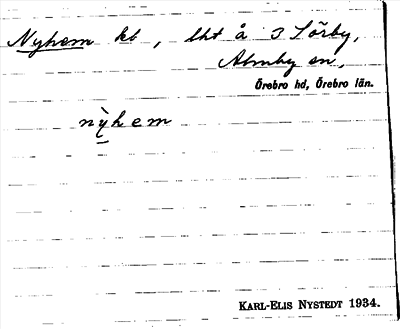 Nyhem kt, lht å 3 Sörby,
Almby sn,
Örebro hd, Örebro län.
nỳhem
KARL-ELIS NYSTEDT 1934.